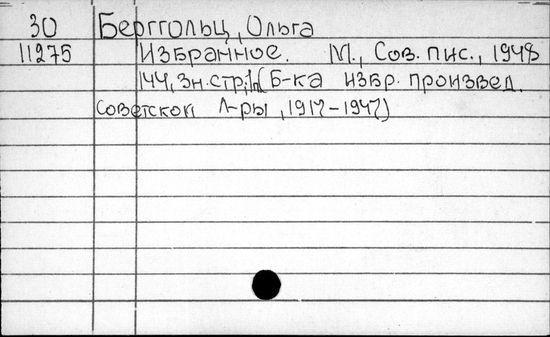 30 Берггольц, Ольга
11275 Избранное. М., Сов. пис., 1948
144, 3н. стр; 1п (Б-ка избр. произвед.
советской Л-ры, 1917-1947)